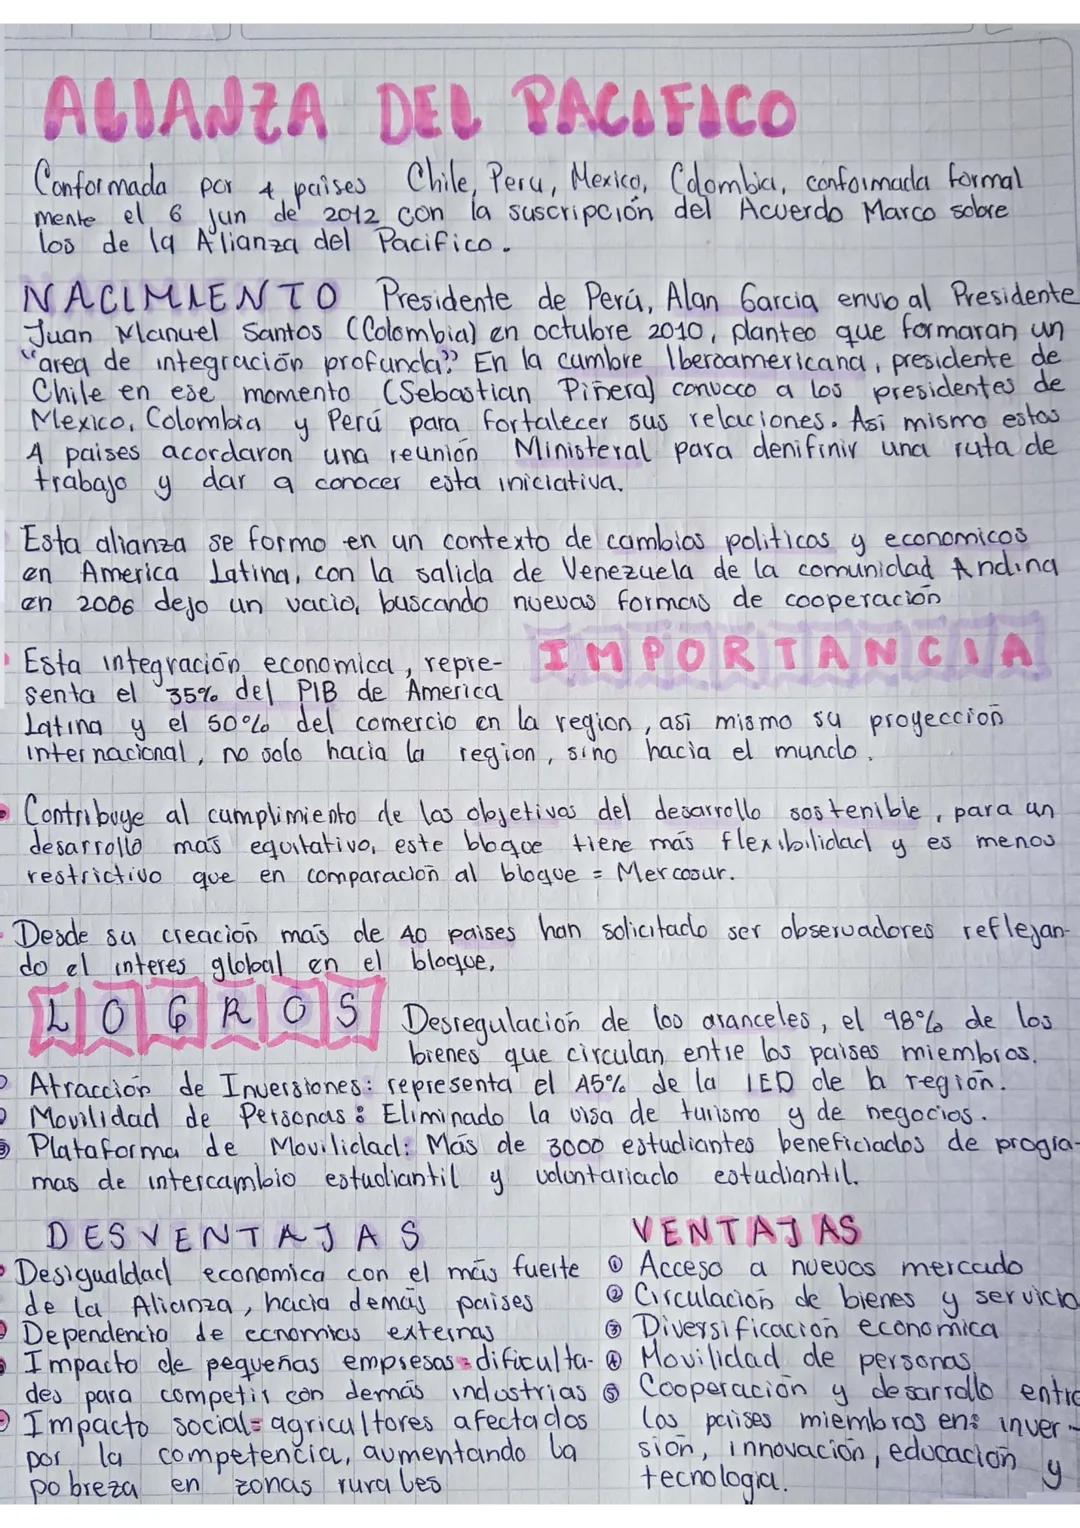 ALIANZA DEL PACIFICO
Conformada por 4 paises Chile, Peru, Mexico, Colombia, conformada formal
mente el 6 jun de 2012 con la suscripción del Acuerdo Marco sobre
los de la Alianza del Pacifico.
NACIMIENTO Presidente de Perú, Alan Garcia envio al Presidente
Juan Manuel Santos (Colombia) en octubre 2010, planteo que formaran un
"area de integración profunda" En la cumbre Iberoamericana, presidente de
Chile en ese momento (Sebastian Piñera) convoco a los presidentes de
Mexico, Colombia y Perú para fortalecer sus relaciones. Asi mismo estos
4 paises acordaron una reunión Ministeral para denifinir una ruta de
trabajo y dar a conocer esta iniciativa.
Esta alianza se formo en un contexto de cambios politicos y economicos
en America Latina, con la salida de Venezuela de la comunidad Andina
en 2006 dejo un vacio, buscando nuevas formas de cooperación
IMPORTANCIA
Esta integración economica, repre-
senta el 35% del PIB de America
Latina y el 50% del comercio en la region, asi mismo su proyección
internacional, no solo hacia la region, sino hacia el mundo.
Contribuye al cumplimiento de los objetivos del desarrollo sostenible, para un
desarrollo más equitativo, este bloque tiene más flexibilidad y es menos
restrictivo que en comparación al bloque = Mercosur.
Desde su creación más de 40 paises han solicitado ser observadores reflejan-
do el interes global en el bloque.
LOGROS
Desregulación de los aranceles, el 98% de los
bienes que circulan entre los paises miembros.
Atracción de Inversiones: representa el 45% de la IED de la región.
Movilidad de Personas: Eliminado la visa de turismo y de negocios.
Plataforma de Movilidad: Más de 3000 estudiantes beneficiados de progra-
mas de intercambio estudiantil y voluntariado estudiantil.
DESVENTAJAS
Desigualdad economica con el más fuerte
de la Alianza, hacia demás paises
Dependencia de ecnomias externas
Impacto de pequeñas empresas = dificulta-
des para competir con demás industrias
Impacto social = agricultores afectados
por la competencia, aumentando la
pobreza en zonas rurales
VENTAJAS
① Acceso a nuevos mercado
② Circulación de bienes y servicio
③ Diversificación economica
④ Movilidad de personas
⑤ Cooperación y desarrollo entre
los paises miembros en: inver-
sión, innovación, educación y
tecnologia.